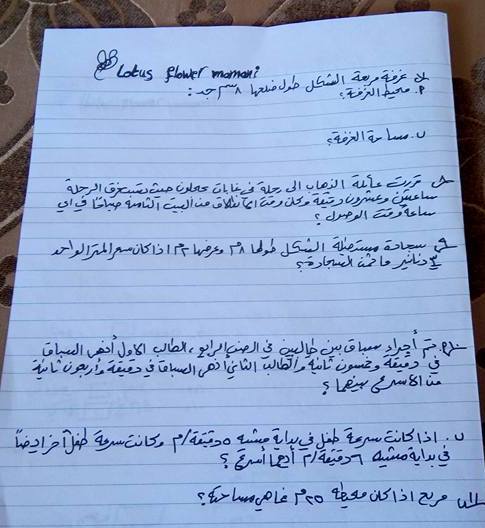 Lotus flower momani
س غرفة مربعة الشكل طول ضلعها ٨سم جد :
٢. محيط الغرفة؟
ب. مساحة الغرفة؟
س قررت عائلة الذهاب الى رحلة في غابات عجلون حيث تستغرق الرحلة
ساعتين وعشرون دقيقة وكان وقت انطلاق من البيت الثامنة صباحًا في اي
ساعة وقت الوصول؟
س سجادة مستطيلة الشكل طولها ٨م وعرضها ٢م اذا كان سعر المتر الواحد
٣ دنانير ما ثمن السجادة؟
تم أجراء سباق بين طالبين في الصف الرابع، الطالب الاول أنهى السباق
في دقيقة وخمسون ثانية والطالب الثاني أنهى السباق في دقيقة وأربعون ثانية
من الأسرع بينهما؟
ب. اذا كانت سرعة طفل في بداية مشيه ٥ دقيقة/م وكانت سرعة طفل آخر ايضاً
في بداية مشيه ٦ دقيقة/م أيهما أسرع؟
مربع اذا كان محيطه ٢٥م فما هي مساحته؟